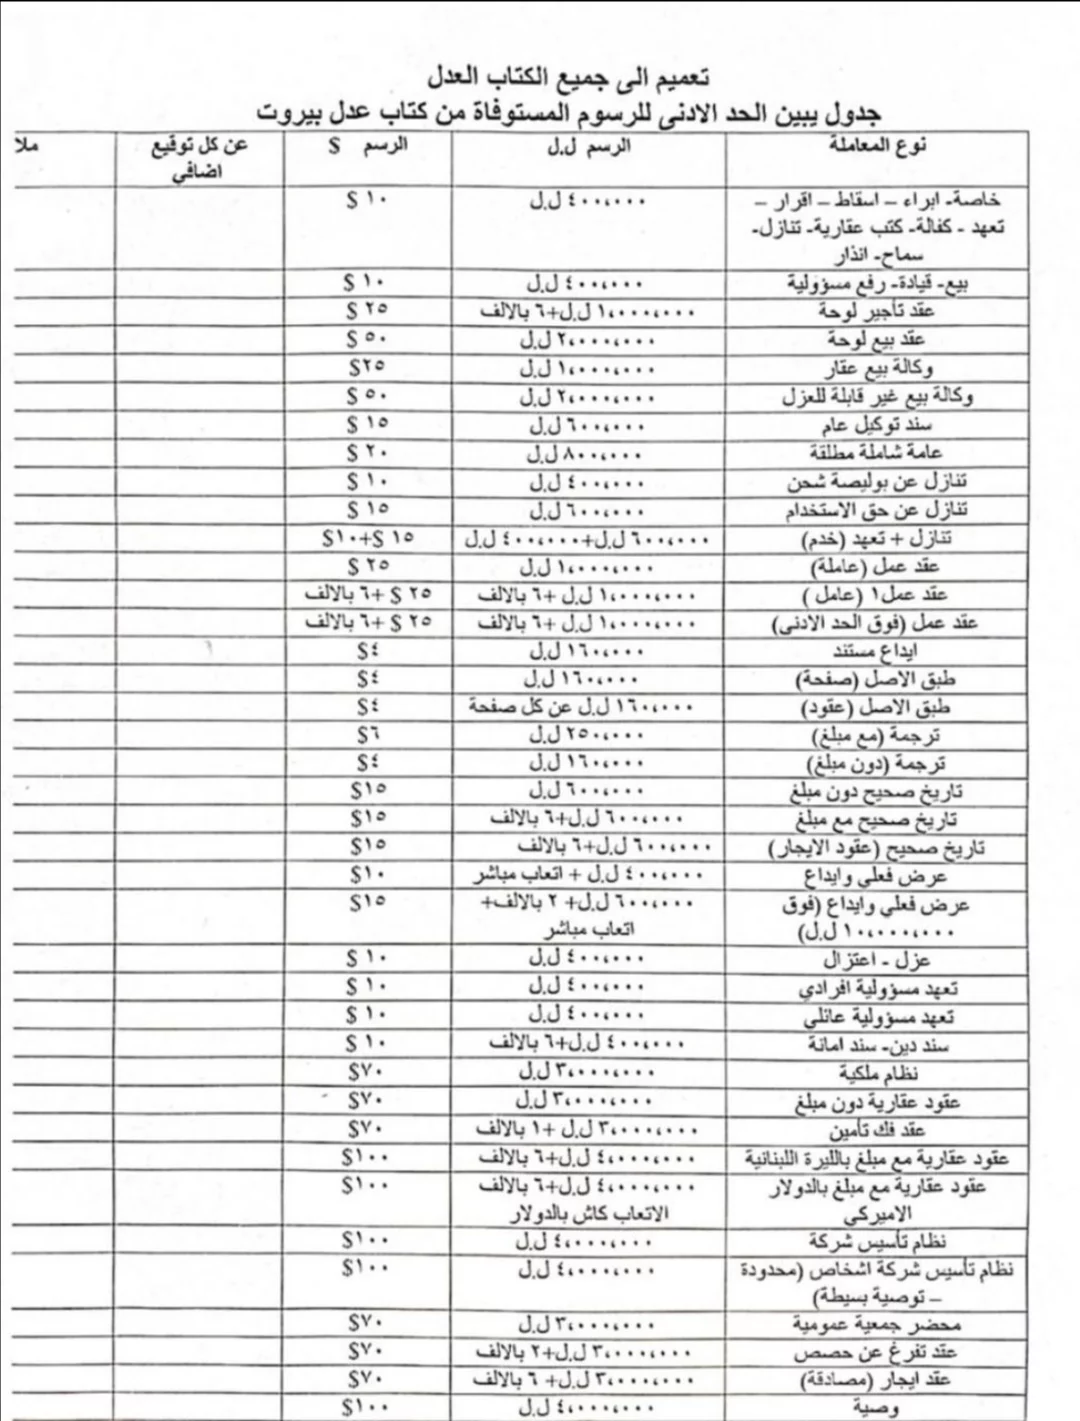 تعميم الى جميع الكتاب العدل
جدول يبين الحد الادنى للرسوم المستوفاة من كتاب عدل بيروت
نوع المعاملة الرسم ل.ل الرسم $ عن كل توقيع اضافي ملا
خاصة- ابراء – اسقاط – اقرار – ٤٠٠،٠٠٠ ل.ل ١٠ $
تعهد - كفالة- كتب عقارية- تنازل-
سماح- انذار
بيع- قيادة- رفع مسؤولية ٤٠٠،٠٠٠ ل.ل ١٠ $
عقد تأجير لوحة ١،٠٠٠،٠٠٠ ل.ل+٦ بالالف ٢٥ $
عقد بيع لوحة ٢،٠٠٠،٠٠٠ ل.ل ٥٠ $
وكالة بيع عقار ١،٠٠٠،٠٠٠ ل.ل ٢٥$
وكالة بيع غير قابلة للعزل ٢،٠٠٠،٠٠٠ ل.ل ٥٠ $
سند توكيل عام ٦٠٠،٠٠٠ ل.ل ١٥ $
عامة شاملة مطلقة ٨٠٠،٠٠٠ ل.ل ٢٠ $
تنازل عن بوليصة شحن ٤٠٠،٠٠٠ ل.ل ١٠ $
تنازل عن حق الاستخدام ٦٠٠،٠٠٠ ل.ل ١٥ $
تنازل + تعهد (خدم) ٦٠٠،٠٠٠ ل.ل+٤٠٠،٠٠٠ ل.ل ١٥ $+١٠$
عقد عمل (عاملة) ١،٠٠٠،٠٠٠ ل.ل ٢٥ $
عقد عمل١ (عامل ) ١،٠٠٠،٠٠٠ ل.ل +٦ بالالف ٢٥ $ +٦ بالالف
عقد عمل (فوق الحد الادنى) ١،٠٠٠،٠٠٠ ل.ل +٦ بالالف ٢٥ $ +٦ بالالف
ايداع مستند ١٦٠،٠٠٠ ل.ل ٤$
طبق الاصل (صفحة) ١٦٠،٠٠٠ ل.ل ٤$
طبق الاصل (عقود) ١٦٠،٠٠٠ ل.ل عن كل صفحة ٤$
ترجمة (مع مبلغ) ٢٥٠،٠٠٠ ل.ل ٦$
ترجمة (دون مبلغ) ١٦٠،٠٠٠ ل.ل ٤$
تاريخ صحيح دون مبلغ ٦٠٠،٠٠٠ ل.ل ١٥$
تاريخ صحيح مع مبلغ ٦٠٠،٠٠٠ ل.ل+٦ بالالف ١٥$
تاريخ صحيح (عقود الايجار) ٦٠٠،٠٠٠ ل.ل+٦ بالالف ١٥$
عرض فعلي وايداع ٤٠٠،٠٠٠ ل.ل + اتعاب مباشر ١٠$
عرض فعلي وايداع (فوق ٦٠٠،٠٠٠ ل.ل+ ٢ بالالف+ ١٥$
١٠،٠٠٠،٠٠٠ ل.ل) اتعاب مباشر
عزل - اعتزال ٤٠٠،٠٠٠ ل.ل ١٠ $
تعهد مسؤولية افرادي ٤٠٠،٠٠٠ ل.ل ١٠ $
تعهد مسؤولية عائلي ٤٠٠،٠٠٠ ل.ل ١٠ $
سند دين- سند امانة ٤٠٠،٠٠٠ ل.ل+٦ بالالف ١٠ $
نظام ملكية ٣،٠٠٠،٠٠٠ ل.ل ٧٠$
عقود عقارية دون مبلغ ٣،٠٠٠،٠٠٠ ل.ل ٧٠$
عقد فك تأمين ٣،٠٠٠،٠٠٠ ل.ل +١ بالالف ٧٠$
عقود عقارية مع مبلغ بالليرة اللبنانية ٤،٠٠٠،٠٠٠ ل.ل+٦ بالالف ١٠٠$
عقود عقارية مع مبلغ بالدولار ٤،٠٠٠،٠٠٠ ل.ل+٦ بالالف ١٠٠$
الاميركي الاتعاب كاش بالدولار
نظام تأسيس شركة ٤،٠٠٠،٠٠٠ ل.ل ١٠٠$
نظام تأسيس شركة اشخاص (محدودة ٤،٠٠٠،٠٠٠ ل.ل ١٠٠$
– توصية بسيطة)
محضر جمعية عمومية ٣،٠٠٠،٠٠٠ ل.ل ٧٠$
عقد تفرغ عن حصص ٣،٠٠٠،٠٠٠ ل.ل+٢ بالالف ٧٠$
عقد ايجار (مصادقة) ٣،٠٠٠،٠٠٠ ل.ل+ ٦ بالالف ٧٠$
وصية ٤،٠٠٠،٠٠٠ ل.ل ١٠٠$